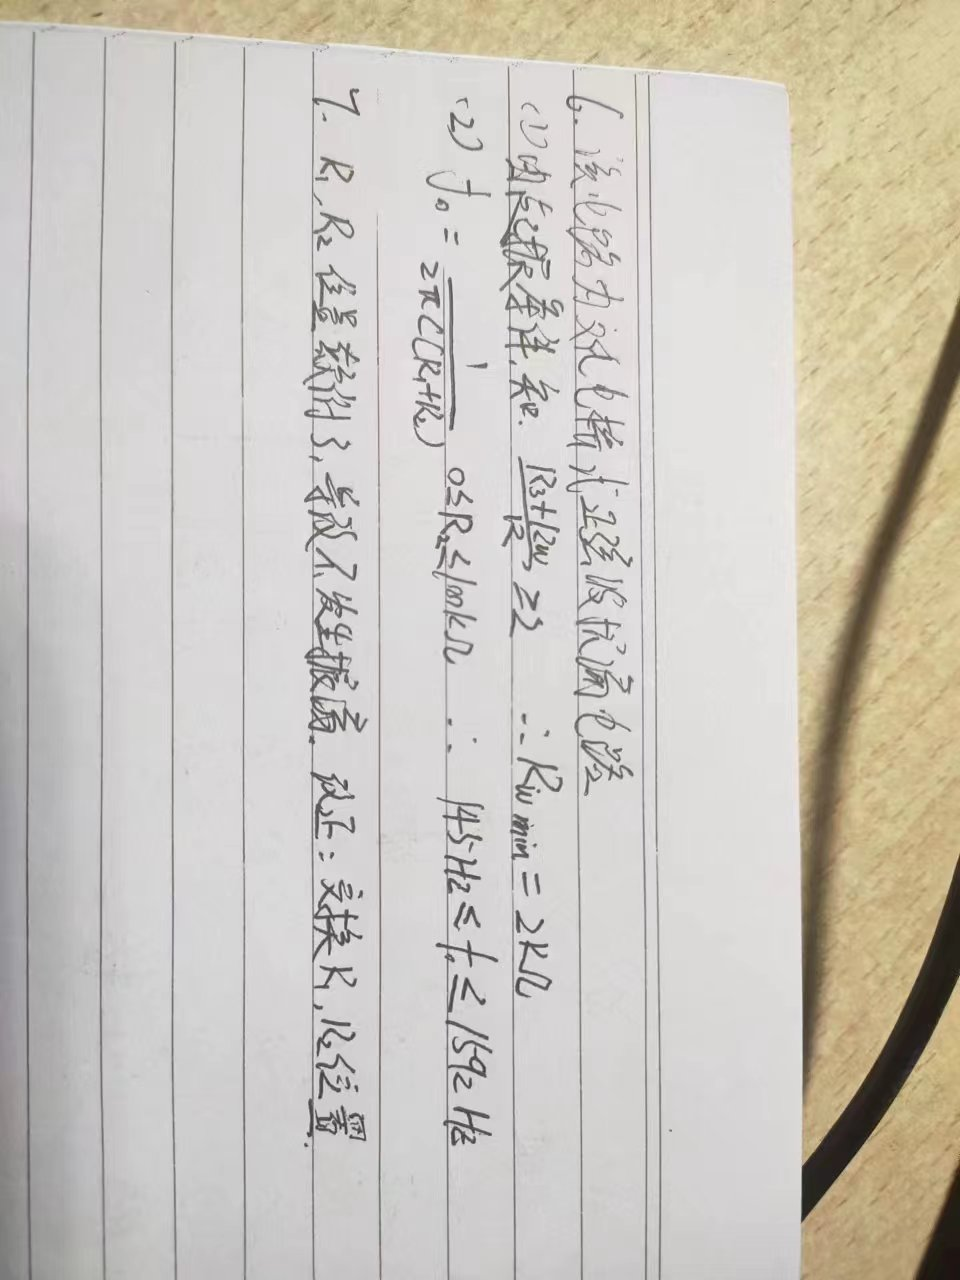 6. 该电路为文氏电桥式正弦波振荡电路
(1) 由起振条件, 知. (R3+Rw)/R ≥2 ∴ Rw min = 2KΩ
(2) f0 = 1/(2πC(R1+R2)) 0≤R2≤100kΩ ∴ 145Hz ≤ f0 ≤ 1592 Hz
7. R1, R2 位置接错了, 导致不发生振荡. 改正: 交换 R1, R2位置.